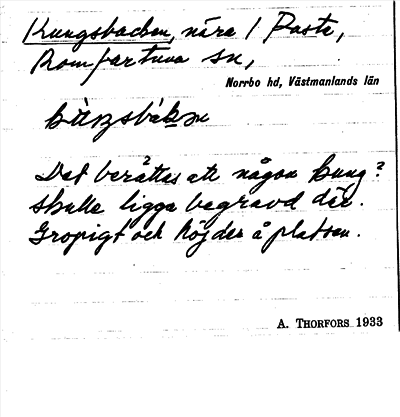 Kungsbacken, nära 1 Paste,
Romfartuna sn,
Norrbo hd, Västmanlands län
Det berättas att någon kung?
skulle ligga begravd där.
Gropigt och höjder å platsen.
A. THORFORS 1933